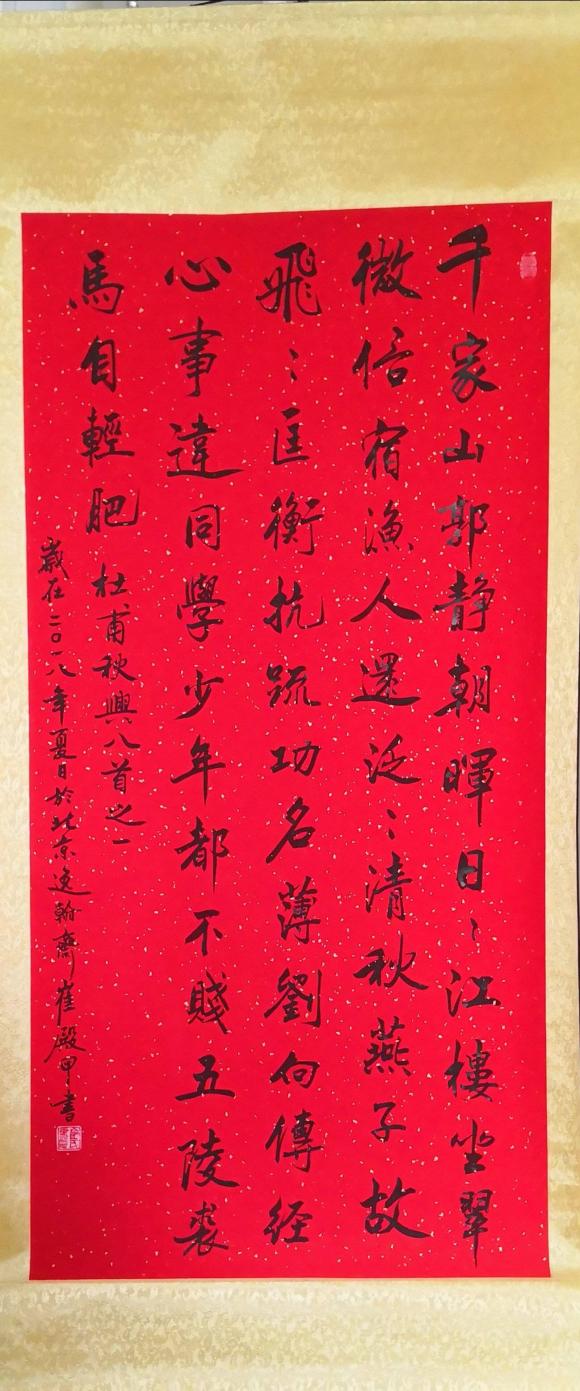 千家山郭静朝暉日〻江樓坐翠
微信宿漁人還泛〻清秋燕子故
飛〻匡衡抗疏功名薄劉向傳経
心事違同學少年都不賤五陵裘
馬自輕肥
杜甫秋興八首之一
歲在二〇一八年夏日於北京逸翰齋崔殿甲書